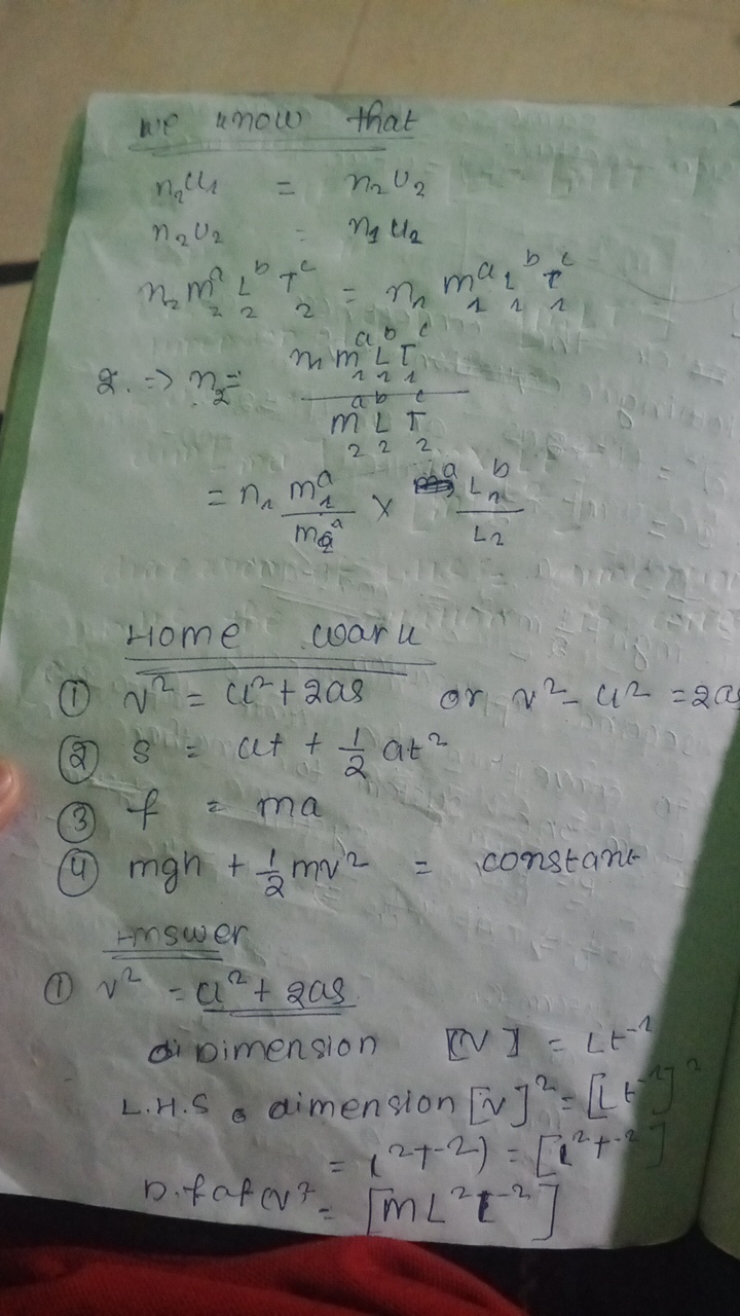 we know that
n₂u₁ = n₂u₂
n₂u₂ = n₁u₂
n₂ m₂ᵃ L₂ᵇ T₂ᶜ = n₁ m₁ᵃ L₁ᵇ T₁ᶜ
2. => n₂ = n₁ m₁ᵃ L₁ᵇ T₁ᶜ / m₂ᵃ L₂ᵇ T₂ᶜ
= n₁ m₁ᵃ / m₂ᵃ × L₁ᵇ / L₂
Home wark
① v² = u² + 2as or v² - u² = 2as
② s = ut + 1/2 at²
③ f = ma
④ mgh + 1/2 mv² = constant
Answer
① v² = u² + 2as
Dimension [V] = Lt⁻¹
L.H.S. dimension [v]² = [Lt⁻¹]²
= L²T⁻²) = [L²t⁻²]
D.f of v² = [mL²t⁻²]